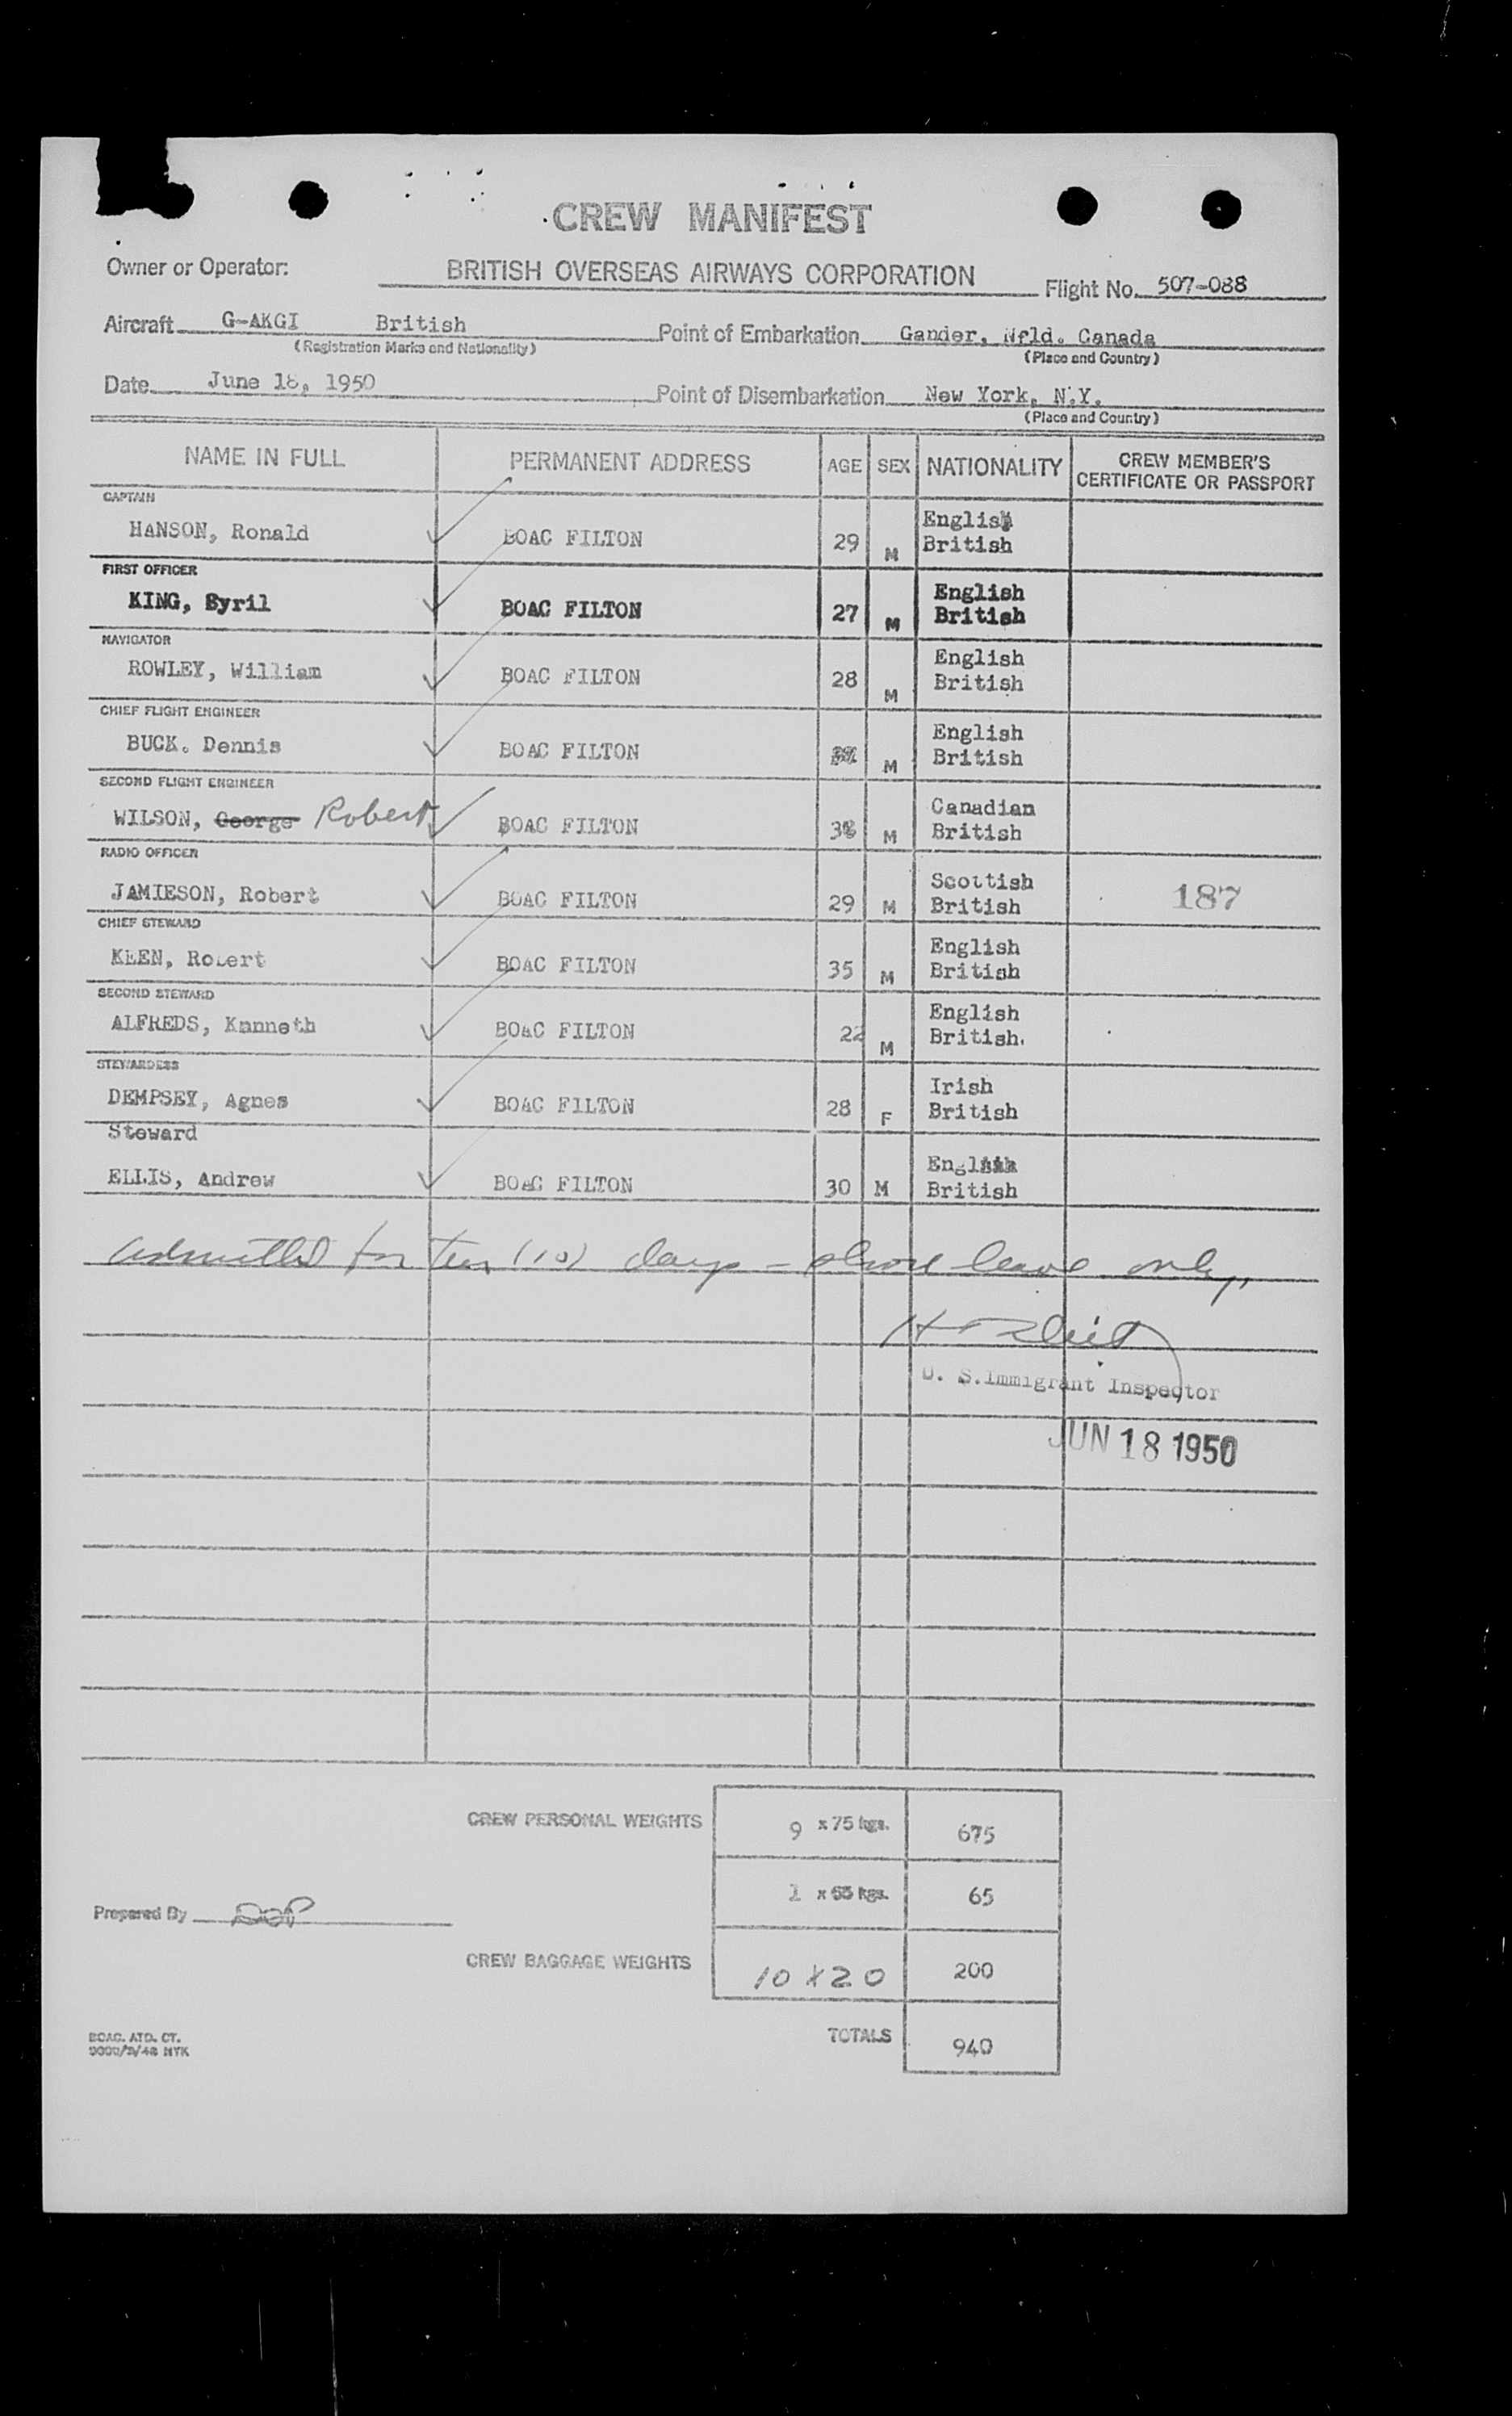 CREW MANIFEST
Owner or Operator: BRITISH OVERSEAS AIRWAYS CORPORATION Flight No. 507-088
Aircraft G-AKGI British Point of Embarkation Gander, Nfld. Canada
(Registration Marks and Nationality) (Place and Country)
Date June 18, 1950 Point of Disembarkation New York, N.Y.
(Place and Country)
NAME IN FULL PERMANENT ADDRESS AGE SEX NATIONALITY CREW MEMBER'S CERTIFICATE OR PASSPORT
CAPTAIN
HANSON, Ronald BOAC FILTON 29 M English British
FIRST OFFICER
KING, Syril BOAC FILTON 27 M English British
NAVIGATOR
ROWLEY, William BOAC FILTON 28 M English British
CHIEF FLIGHT ENGINEER
BUCK. Dennis BOAC FILTON M English British
SECOND FLIGHT ENGINEER
WILSON, George Robert BOAC FILTON M Canadian British
RADIO OFFICER
JAMIESON, Robert BOAC FILTON 29 M Scottish British 187
CHIEF STEWARD
KEEN, Robert BOAC FILTON 35 M English British
SECOND STEWARD
ALFREDS, Kenneth BOAC FILTON 22 M English British.
STEWARDESS
DEMPSEY, Agnes BOAC FILTON 28 F Irish British
Steward
ELLIS, Andrew BOAC FILTON 30 M English British
Admitted for Ten (10) days - shore leave only,
U. S. Immigrant Inspector
JUN 18 1950
CREW PERSONAL WEIGHTS 9 x 75 kgs. 675
1 x 65 kgs. 65
Prepared By
CREW BAGGAGE WEIGHTS 10 X 20 200
TOTALS 940
BOAC. ATD. CT.
NYK